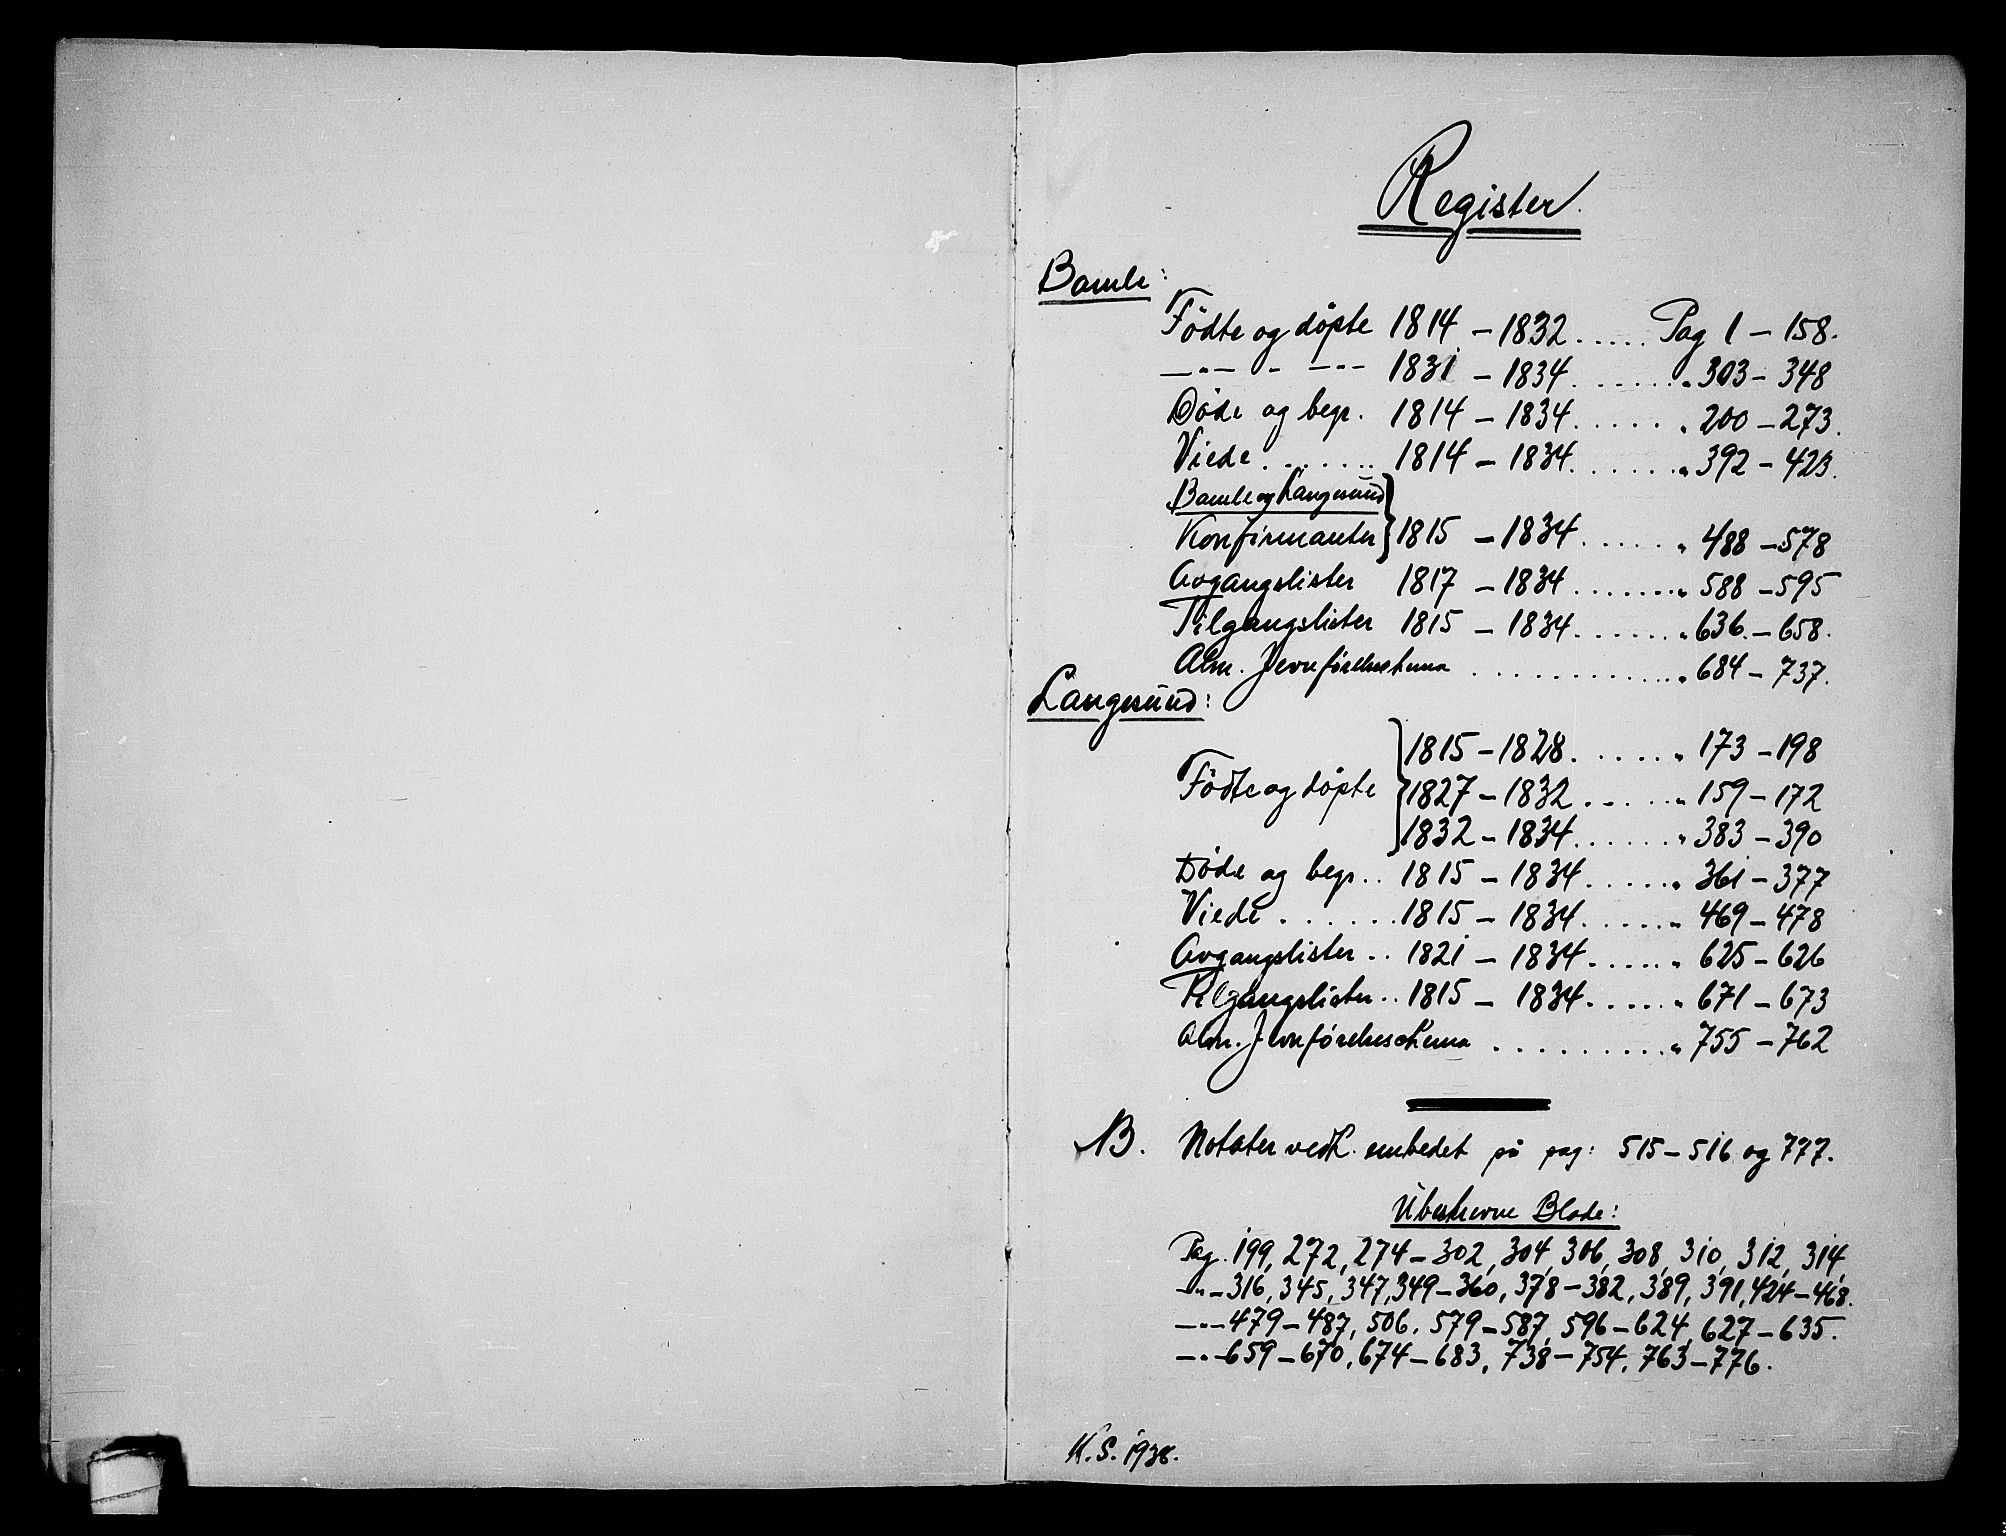 Register.
Bamle:
Födte og døpte 1814 – 1832 ..... Pag 1 – 158.
—"— - —"— 1831 – 1834 ....... " 303 – 348
Døde og begr. 1814 – 1834 ...... " 200 – 273.
Viede ....... 1814 – 1834 ....... " 392 – 423.
Bamle og Langesund
Konfirmanter } 1815 – 1834 ...... " 488 – 578
Avgangslister 1817 – 1834 ....... " 588 – 595
Tilgangslister 1815 – 1834 ....... " 636. – 658.
Alm. Jevnførelseschema ............. " 684 – 737.
Langesund:
1815 – 1828 ....... " 173 – 198
Födte og døpte } 1827 – 1832 ...... " 159 – 172
1832 – 1834 ....... " 383 – 390
Døde og begr .. 1815 – 1834 ...... " 361 – 377
Viede ...... 1815 – 1834 ...... " 469 – 478
Avgangslister .. 1821 – 1834 ...... " 625 – 626
Tilgangslister .. 1815 – 1834 ...... " 671 – 673
Alm. Jevnførelseschema .......... " 755 – 762
NB. Notater vedk. embedet på pag: 515 – 516 og 777.
Ubeskrevne Blade:
Pag. 199, 272, 274 – 302, 304, 306, 308, 310, 312, 314
—"— 316, 345, 347, 349 – 360, 378 – 382, 389, 391, 424 – 468.
—"— 479 – 487, 506. 579 – 587, 596 – 624, 627 – 635.
—"— 659 – 670, 674 – 683, 738 – 754, 763 – 776.
K. S. 1938.